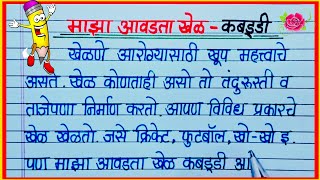 माझा आवडता खेळ - कबड्डी
खेळणे आरोग्यासाठी खूप महत्त्वाचे
असते. खेळ कोणताही असो तो तंदुरुस्ती व
ताजेपणा निर्माण करतो. आपण विविध प्रकारचे
खेळ खेळतो. जसे क्रिकेट, फुटबॉल, खो-खो इ.
पण माझा आवडता खेळ कबड्डी आ